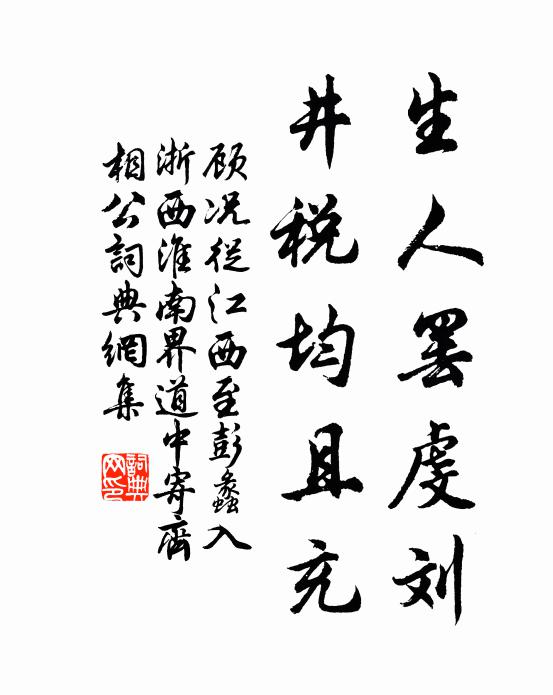 生人罢虔刘
井税均且充
顾况從江西至彭蠡入
浙西淮南界道中寄齊
相公詞典網集
詞典网印